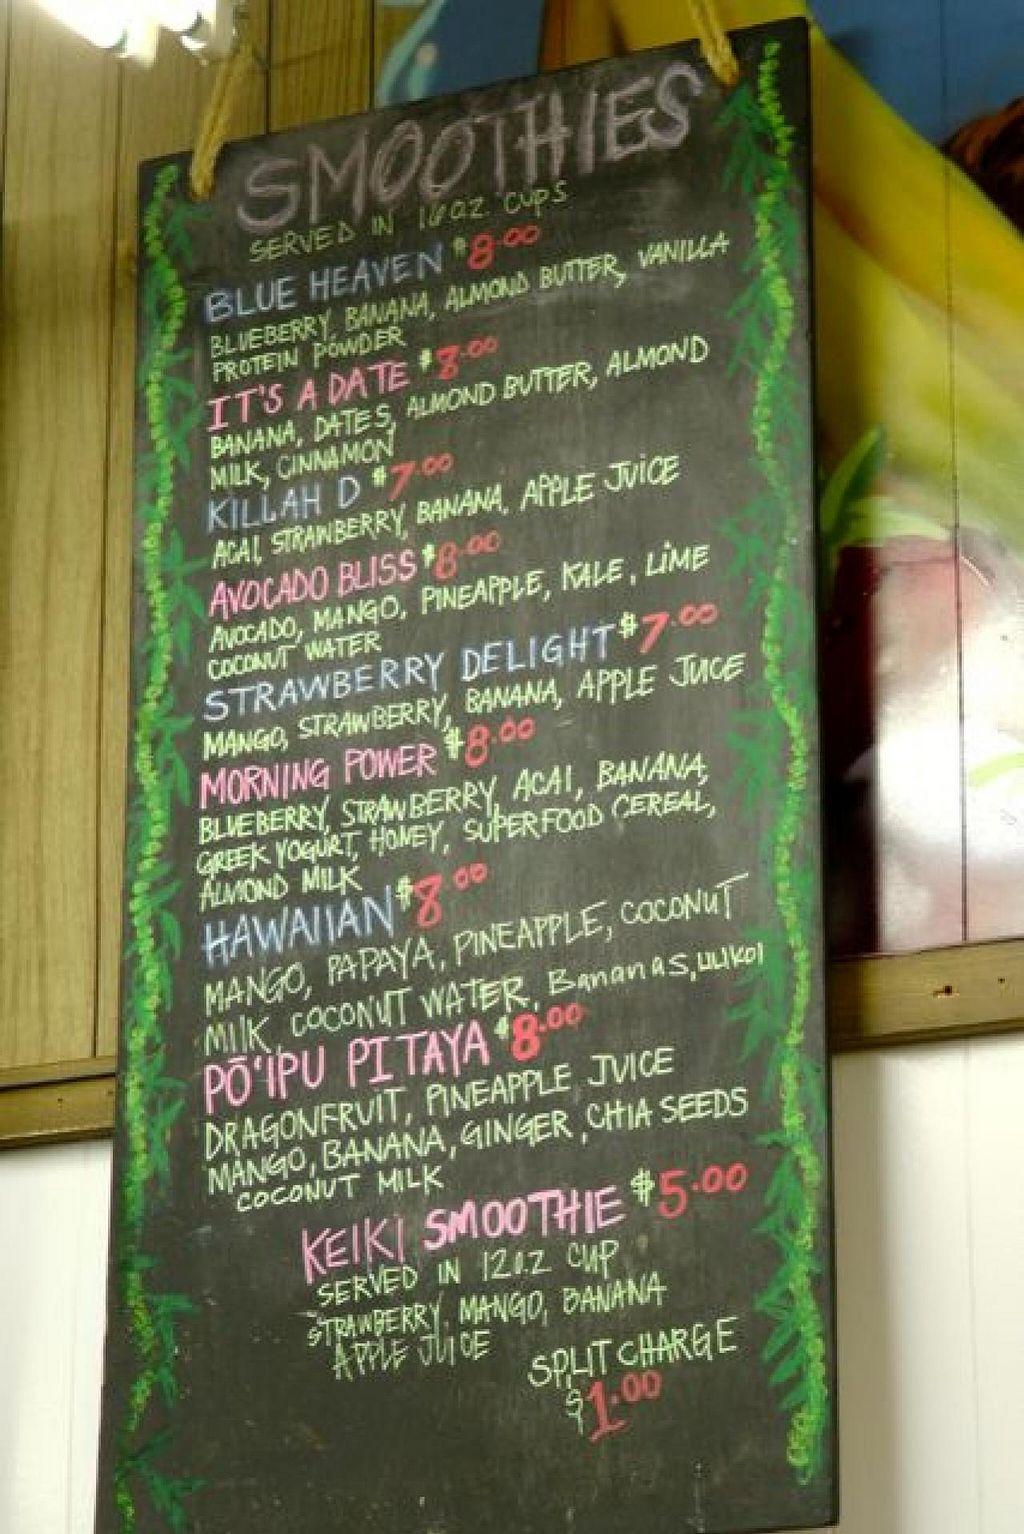 SMOOTHIES
SERVED IN 16oz CUPS
BLUE HEAVEN $8.00
BLUEBERRY, BANANA, ALMOND BUTTER, VANILLA
PROTEIN POWDER
IT'S A DATE $8.00
BANANA, DATES, ALMOND BUTTER, ALMOND
MILK, CINNAMON
KILLAH D $7.00
ACAI, STRAWBERRY, BANANA, APPLE JUICE
AVOCADO BLISS $8.00
AVOCADO, MANGO, PINEAPPLE, KALE, LIME
COCONUT WATER
STRAWBERRY DELIGHT $7.00
MANGO, STRAWBERRY, BANANA, APPLE JUICE
MORNING POWER $8.00
BLUEBERRY, STRAWBERRY, ACAI, BANANA,
GREEK YOGURT, HONEY, SUPERFOOD CEREAL,
ALMOND MILK
HAWAIIAN $8.00
MANGO, PAPAYA, PINEAPPLE, COCONUT
MILK, COCONUT WATER, Bananas, LILIKOI
PŌ'IPU PITAYA $8.00
DRAGONFRUIT, PINEAPPLE JUICE
MANGO, BANANA, GINGER, CHIA SEEDS
COCONUT MILK
KEIKI SMOOTHIE $5.00
SERVED IN 12oz CUP
STRAWBERRY, MANGO, BANANA
APPLE JUICE
SPLIT CHARGE
$1.00